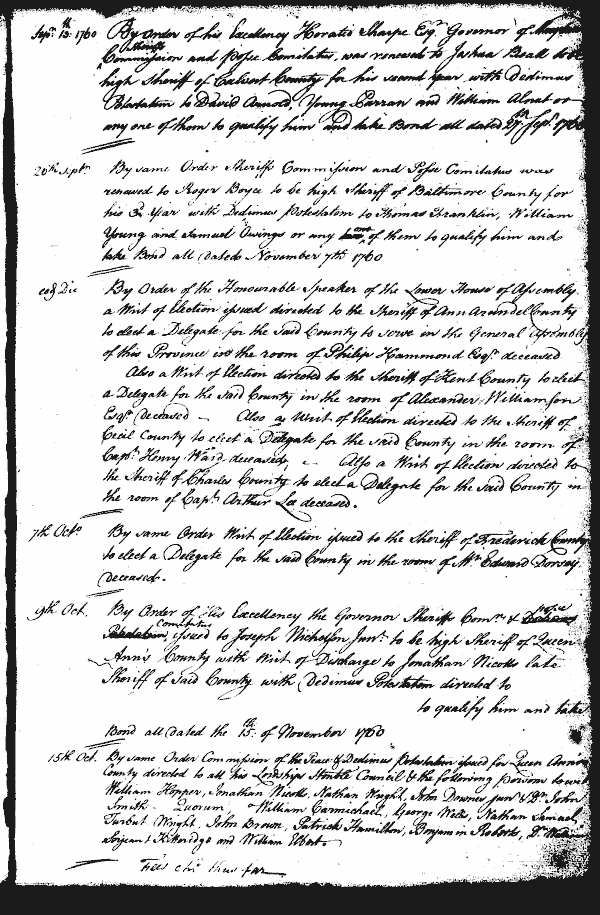 Sepr. 13th. 1760 By Order of his Excellency Horatio Sharpe Esqr. Governor of
Sheriffs
Commission and Posse Comitatus, was renewed to Joshua Beall to be
high Sheriff of Calvert County for his second Year, with Dedimus
Potestatem to David Arnold, Young Parran and William Alnut or
any one of them to qualify him and take Bond all dated 27th Sept. 1760
20th. Septr. By same Order Sheriffs Commission and Posse Comitatus was
renewed to Roger Boyce to be high Sheriff of Baltimore County for
his 3d. Year with Dedimus Potestatem to Thomas Franklin, William
Young and Samuel Owings or any one of them to qualify him and
take Bond all dated November 7th. 1760
By Order of the Honourable Speaker of the Lower House of Assembly
a Writ of Election issued directed to the Sheriff of Ann Arundel County
to elect a Delegate for the said County to serve in the General Assembly
of this Province in the room of Philip Hammond Esqr. deceased
Also a Writ of Election directed to the Sheriff of Kent County to elect
a Delegate for the said County in the room of Alexander Williamson
Esqr. deceased — Also a Writ of Election directed to the Sheriff of
Cecil County to elect a Delegate for the said County in the room of
Capt. Henry Ward deceased, — Also a Writ of Election directed to
the Sheriff of Charles County to elect a Delegate for the said County in
the room of Capt. Arthur Lee deceased.
7th Octr. By same Order Writ of Election issued to the Sheriff of Frederick County
to elect a Delegate for the said County in the room of Mr. Edward Dorsey
deceased.
9th Oct. By Order of His Excellency the Governor Sheriffs Comn. & posse
Comitatus
issued to Joseph Nicholson Junr. to be high Sheriff of Queen
Ann's County with Writ of Discharge to Jonathan Nicolls late
Sheriff of said County with Dedimus Potestatem directed to
to qualify him and take
Bond all dated the 15th. of November 1760
15th Oct. By same Order Commission of the Peace & Dedimus Potestatem issued for Queen Anns
County directed to all his Lordships Honble Council & the following persons to wit
William Hopper, Jonathan Nicolls, Nathan Wright, John Downes junr. & Dr. John
Smith - Quorum, William Carmichael, George Wells, Nathan Samuel
Turbut Wright, John Brown, Patrick Hamilton, Benjamin Roberts,
Serjeant Kitteredge and William Elbert.
Fees thus far